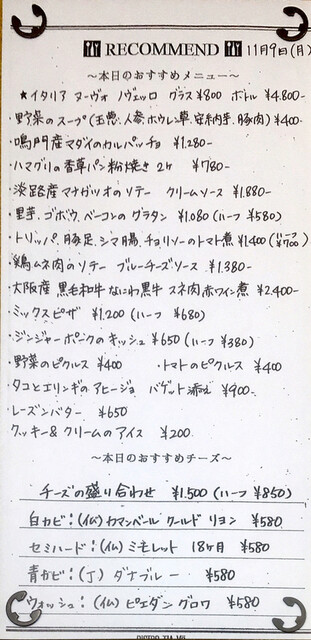 RECOMMEND 11月9日(月)
～本日のおすすめメニュー～
★イタリア ヌーヴォ ノヴェッロ グラス¥800 ボトル ¥4.800-
・野菜のスープ(玉葱、人参、ホウレン草、安納芋、豚肉) ¥400-
・鳴門産マダイのカルパッチョ ¥1.280-
・ハマグリの香草パン粉焼き 2ヶ ¥780-
・淡路産マナガツオのソテー クリームソース ¥1.880-
・里芋、ゴボウ、ベーコンのグラタン ¥1.080(ハーフ ¥580)
・トリッパ、豚足、シマ腸、チョリソーのトマト煮 ¥1400(ハーフ ¥700)
・鶏ムネ肉のソテー ブルーチーズソース ¥1.380-
・大阪産 黒毛和牛 なにわ黒牛 スネ肉赤ワイン煮 ¥2.400-
・ミックスピザ ¥1.200(ハーフ ¥680)
・ジンジャーポークのキッシュ ¥650(ハーフ ¥380)
・野菜のピクルス ¥400 ・トマトのピクルス ¥400
・タコとエリンギのアヒージョ バゲット添え ¥900-
・レーズンバター ¥650
クッキー&クリームのアイス ¥200
～本日のおすすめチーズ～
チーズの盛り合わせ ¥1.500(ハーフ ¥850)
白カビ:(仏)カマンベール クールド リヨン ¥580
セミハード:(仏)ミモレット 18ヶ月 ¥580
青カビ:(J)ダナブルー ¥580
ウォッシュ:(仏)ピエダングロワ ¥580